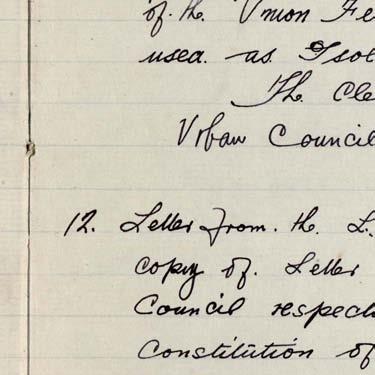 of the Union Fe
used as Isol
The Cle
Urban Council
12. Letter from the L.
copy of Letter
Council respect
Constitution of